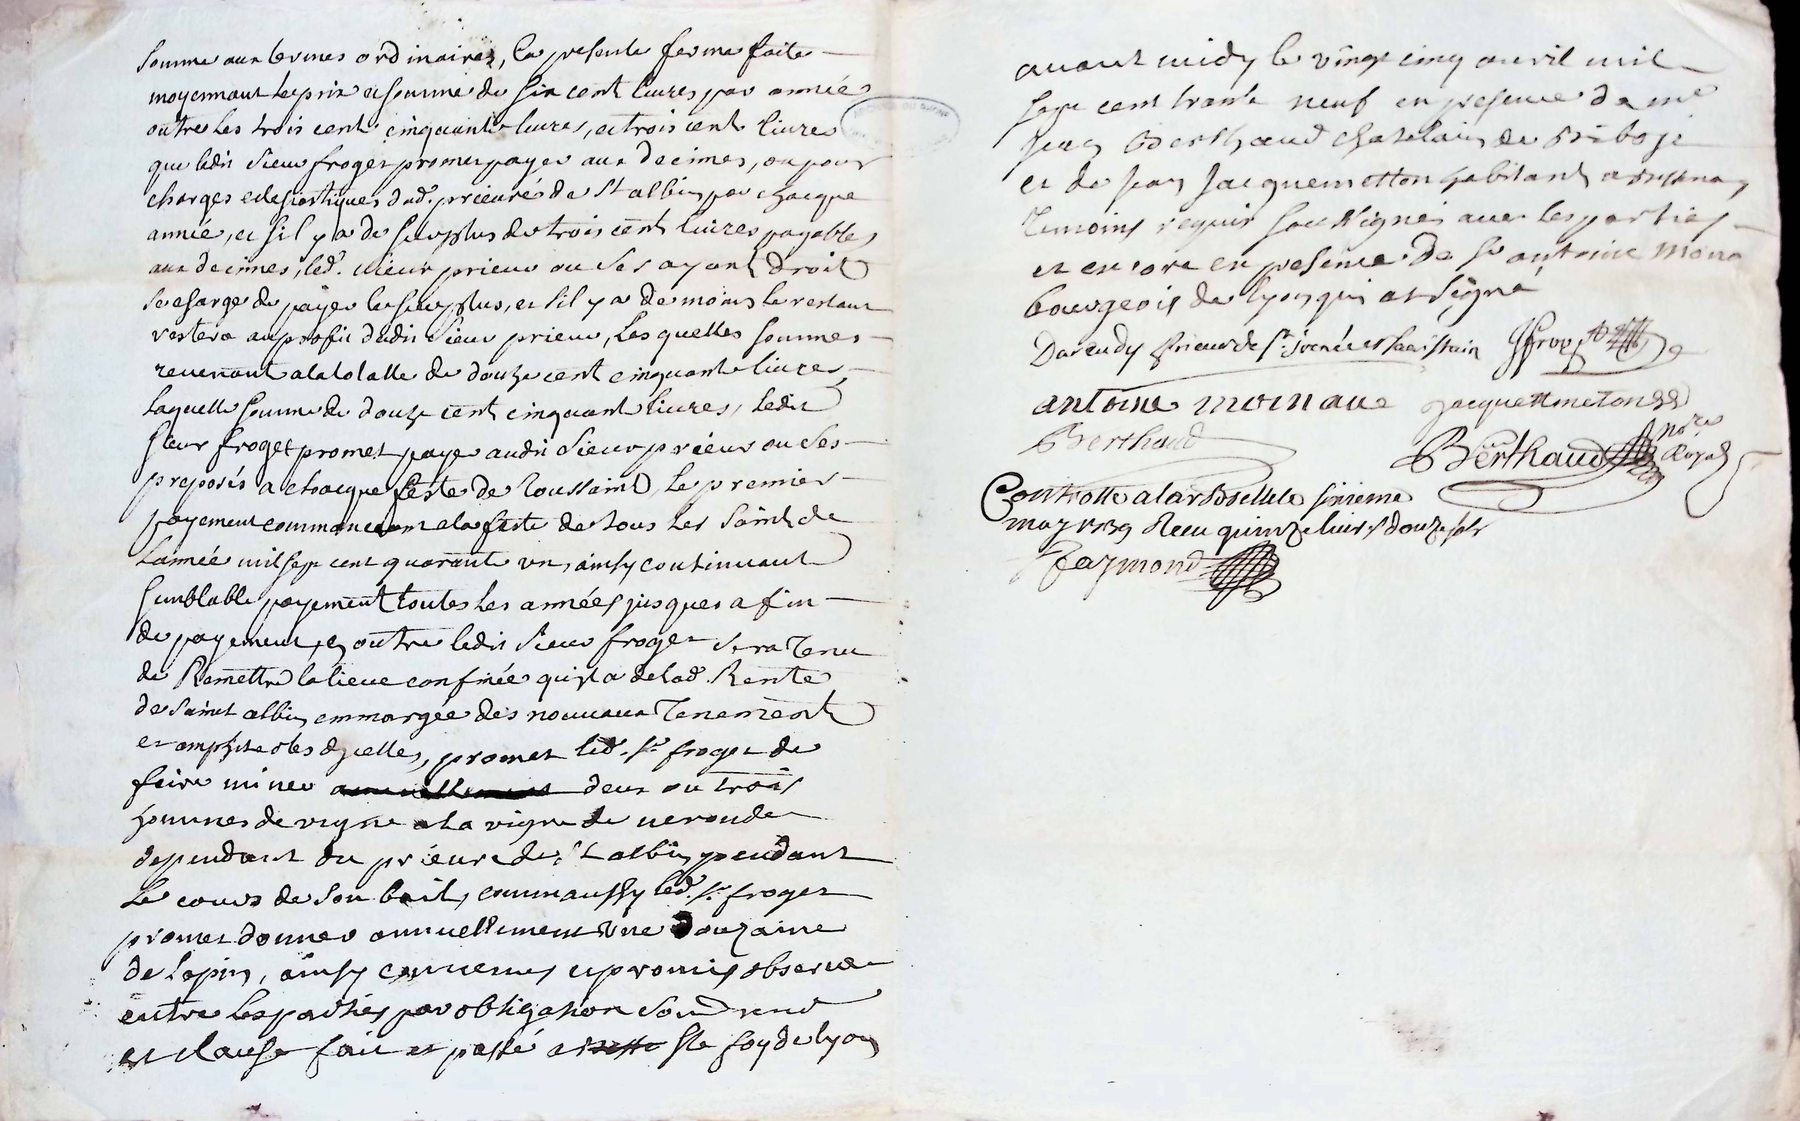 somme aux termes ordinaires, la presente ferme faite
moyennant le prix et somme de six cent livres par année
outre les trois cent cinquante livres, et trois cent livres
que ledit sieur froget promet payer aux decimes, ou pour
charges eclesiastiques dud. prieuré de st albin par chacque
année, et s'il y a de surplus de trois cent livres payables
aux decimes, led. sieur prieur ou ses ayant droit
se charge de payer le surplus, et s'il y a de moins le restant
restera au profit dudit sieur prieur, Les quelles sommes
revenant a la totalle de douze cent cinquante livres,
laquelle somme de douze cent cinquante livres, ledit
sieur froget promet paye audit sieur prieur ou ses
preposés a chacque feste de Toussaint, le premier
payement commancera a la feste de tous les saints de
l'année mil sept cent quarante un, ainsy continuant
semblable payement toutes les années jusques a fin
de payement, et outre ledit sieur froget sera tenu
de Remettre la lieve confinée qu'il y a de lad. Rente
de saint albin emmargée des nouveaux Tenementt
et amphiteotes d'jcelles, promet led. sr. froget de
faire miner deux ou trois
hommes de vigne a la vigne de neronde
dependant du prieuré de st albin pendant
le cours de son bail, comm'aussy led. sr. froget
promet donner annuellement une douzaine
de lapin, ainsy convenus et promis observer
entre les parties par obligation
et clause fait et passé a Ste foy de lyon
avant midy le vingt cinq avril mil
sept cent trante neuf en presence de me
Jean Berthaud chatelain de
et de Jean Jacquemetton habitant a
Temoins requis sousignés avec les parties
et encore en presence de sr antoine
bourgeois de lyon qui at signé
prieur de st. jrenée et
antoine jacquemeton
Berthaud Berthaud nore Royal
Controllé a larbrelle le sixieme
may 1739 Receu quinze livres douze sols
Raymond